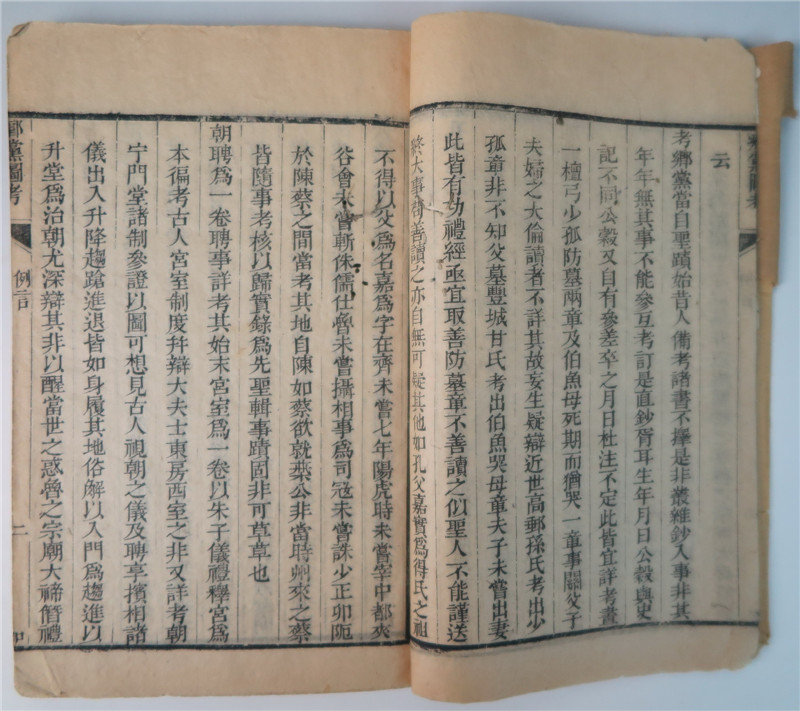 云
考鄉黨當自聖蹟始昔人備考諸書不擇是非叢雜鈔入事非其
年年無其事不能參互考訂是直鈔胥耳生年月日公穀與史
記不同公穀又自有參差卒之月日杜注不定此皆宜詳考書
一檀弓少孤防墓兩章及伯魚母死期而猶哭一章事關父子
夫婦之大倫讀者不詳其故妄生疑辯近世高郵孫氏考出少
孤章非不知父墓豐城甘氏考出伯魚哭母章夫子未嘗出妻
此皆有功禮經亟宜取善防墓章不善讀之似聖人不能謹送
終大事苟善讀之亦自無可疑其他如孔父嘉實為得氏之祖
不得以父為名嘉為字在齊未嘗七年陽虎時未嘗宰中都夾
谷會未嘗斬侏儒仕魯未嘗攝相事為司寇未嘗誅少正卯阨
於陳蔡之間當考其地自陳如蔡欲就葉公非當時州來之蔡
皆隨事考核以歸實錄為先聖輯事蹟固非可草草也
朝聘為一卷聘事詳考其始末宮室為一卷以朱子儀禮釋宮為
本徧考古人宮室制度并辯大夫士東房西室之非又詳考朝
宁門堂諸制參證以圖可想見古人視朝之儀及聘享擯相諸
儀出入升降趨蹌進退皆如身履其地俗解以入門為趨進以
升堂為治朝尤深辯其非以醒當世之惑魯之宗廟大禘僭禮
鄉黨圖考
例言
二